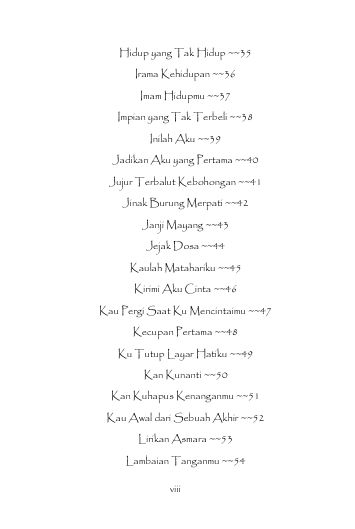 Hidup yang Tak Hidup ~~35
Irama Kehidupan ~~36
Imam Hidupmu ~~37
Impian yang Tak Terbeli ~~38
Inilah Aku ~~39
Jadikan Aku yang Pertama ~~40
Jujur Terbalut Kebohongan ~~41
Jinak Burung Merpati ~~42
Janji Mayang ~~43
Jejak Dosa ~~44
Kaulah Matahariku ~~45
Kirimi Aku Cinta ~~46
Kau Pergi Saat Ku Mencintaimu ~~47
Kecupan Pertama ~~48
Ku Tutup Layar Hatiku ~~49
Kan Kunanti ~~50
Kan Kuhapus Kenanganmu ~~51
Kau Awal dari Sebuah Akhir ~~52
Lirikan Asmara ~~53
Lambaian Tanganmu ~~54
viii